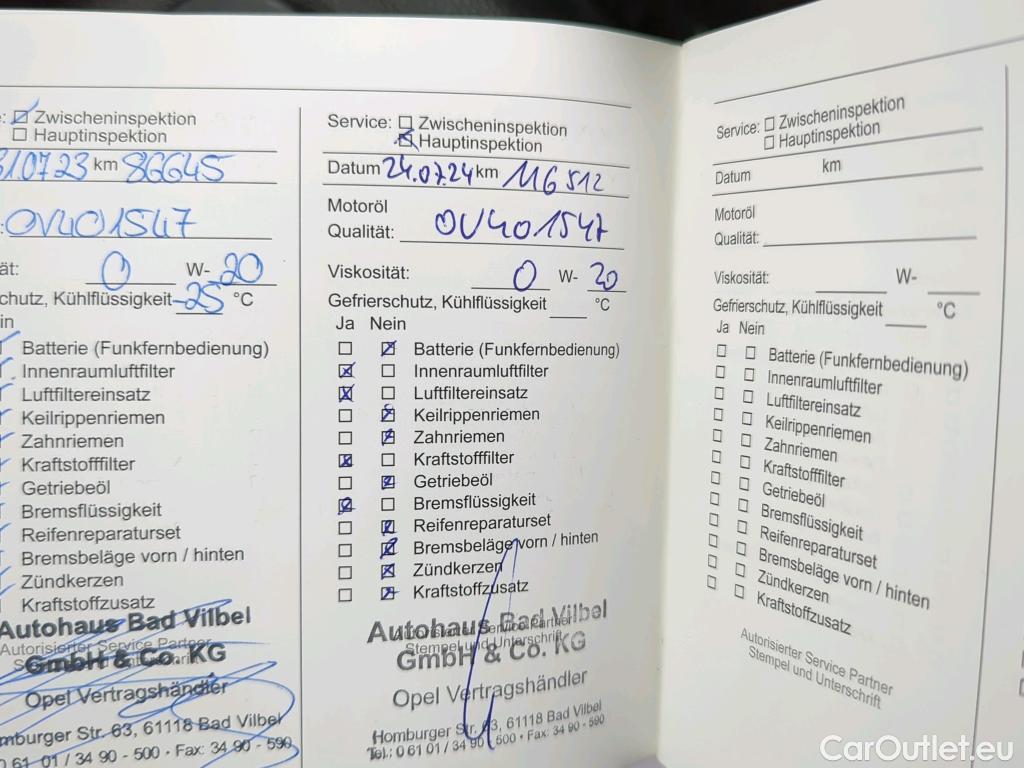 Zwischeninspektion
Hauptinspektion
07.23 km 86645
OV401547
0 W- 20
chutz, Kühlflüssigkeit -25 °C
Batterie (Funkfernbedienung)
Innenraumluftfilter
Luftfiltereinsatz
Keilrippenriemen
Zahnriemen
Kraftstofffilter
Getriebeöl
Bremsflüssigkeit
Reifenreparaturset
Bremsbeläge vorn / hinten
Zündkerzen
Kraftstoffzusatz
Autohaus Bad Vilbel
Autorisierter Service Partner
GmbH & Co. KG
Opel Vertragshändler
mburger Str. 63, 61118 Bad Vilbel
0 61 01 / 34 90 - 500 · Fax: 34 90 - 590
Service: Zwischeninspektion
Hauptinspektion
Datum 24.07.24 km 116512
Motoröl
Qualität: OV401547
Viskosität: 0 W- 20
Gefrierschutz, Kühlflüssigkeit °C
Ja Nein
Batterie (Funkfernbedienung)
Innenraumluftfilter
Luftfiltereinsatz
Keilrippenriemen
Zahnriemen
Kraftstofffilter
Getriebeöl
Bremsflüssigkeit
Reifenreparaturset
Bremsbeläge vorn / hinten
Zündkerzen
Kraftstoffzusatz
Autohaus Bad Vilbel
Autorisierter Service Partner
Stempel und Unterschrift
GmbH & Co. KG
Opel Vertragshändler
Homburger Str. 63, 61118 Bad Vilbel
Tel.: 0 61 01 / 34 90 - 500 · Fax: 34 90 - 590
Service: Zwischeninspektion
Hauptinspektion
Datum km
Motoröl
Qualität:
Viskosität: W-
Gefrierschutz, Kühlflüssigkeit °C
Ja Nein
Batterie (Funkfernbedienung)
Innenraumluftfilter
Luftfiltereinsatz
Keilrippenriemen
Zahnriemen
Kraftstofffilter
Getriebeöl
Bremsflüssigkeit
Reifenreparaturset
Bremsbeläge vorn / hinten
Zündkerzen
Kraftstoffzusatz
Autorisierter Service Partner
Stempel und Unterschrift
CarOutlet.eu